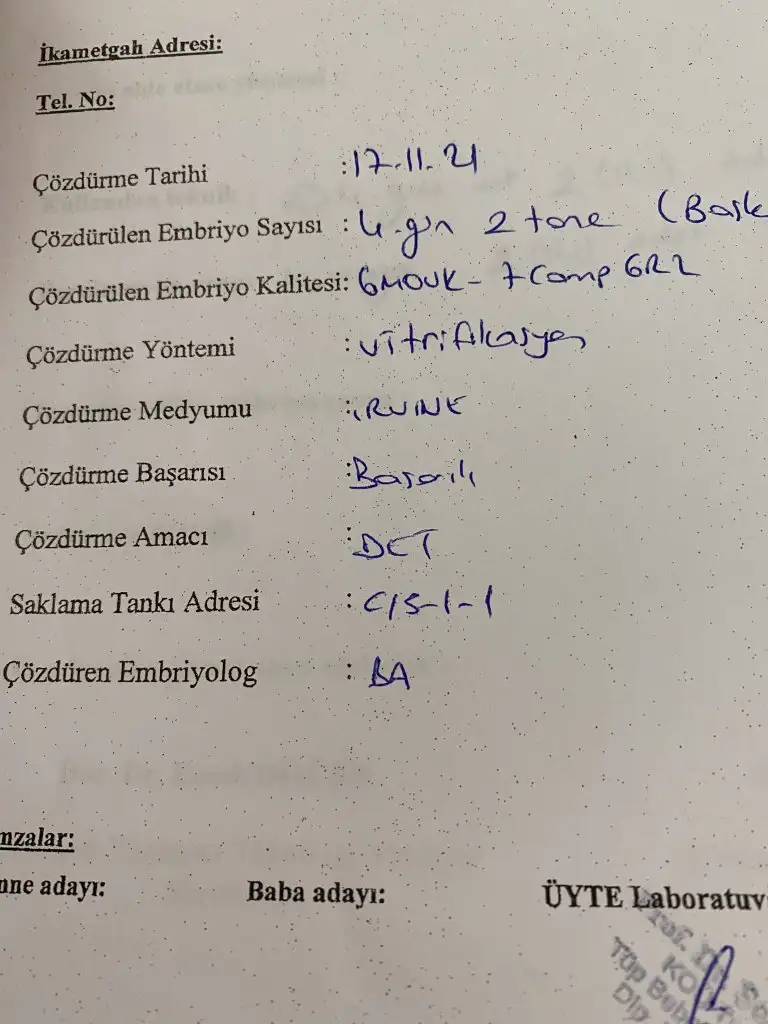 İkametgah Adresi:
Tel. No:
Çözdürme Tarihi :17.11.21
Çözdürülen Embriyo Sayısı : 4.gün 2 tane (Bask
Çözdürülen Embriyo Kalitesi: 6MOUK - 7 Comp GR2
Çözdürme Yöntemi : vitrifikasyon
Çözdürme Medyumu : IRVINE
Çözdürme Başarısı : Başarılı
Çözdürme Amacı : DET
Saklama Tankı Adresi : C15-1-1
Çözdüren Embriyolog : BA
mzalar:
nne adayı: Baba adayı: ÜYTE Laboratuv
Prof. Dr.
Tüp Beb
Dip